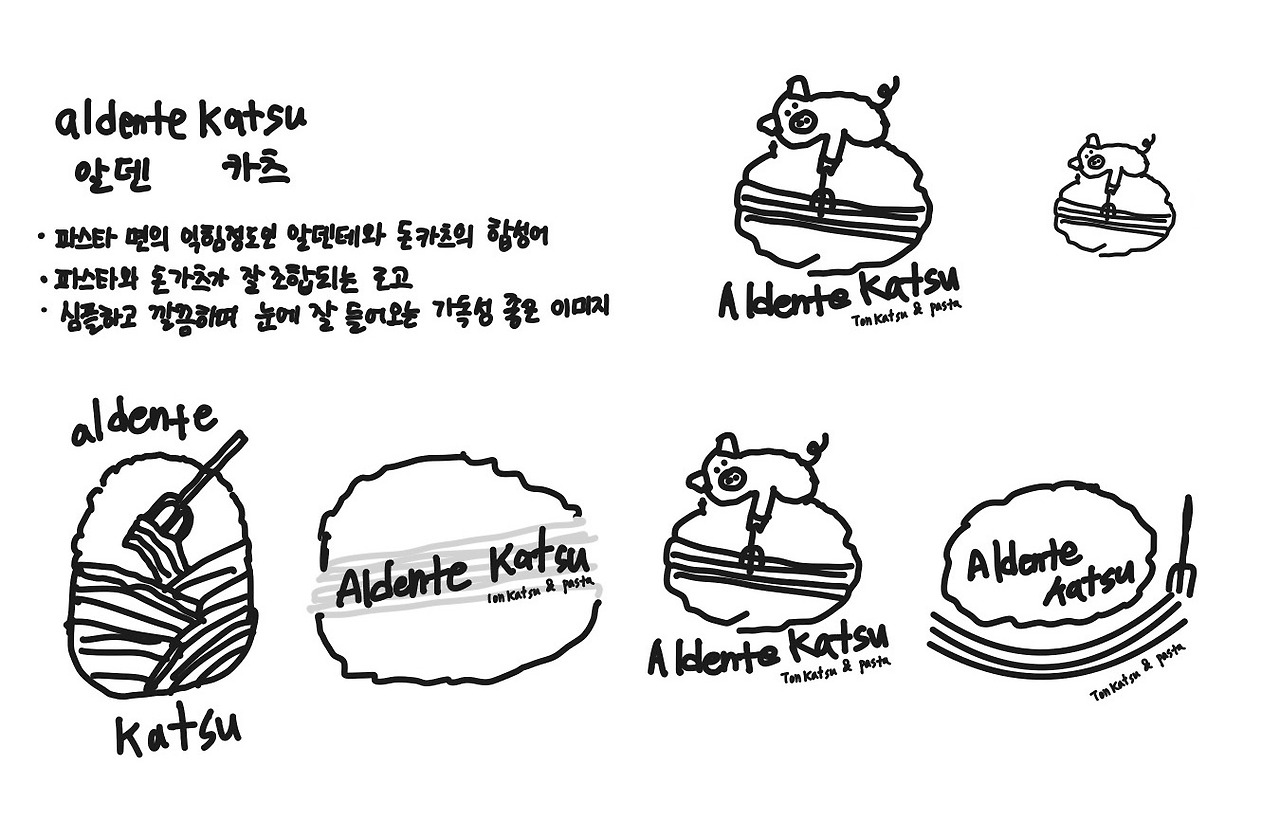 aldente katsu
알덴 카츠
· 파스타 면의 익힘정도인 알덴테와 돈카츠의 합성어
· 파스타와 돈가츠가 잘 조합되는 로고
· 심플하고 깔끔하며 눈에 잘 들어오는 가독성 좋은 이미지
Aldente Katsu
Tonkatsu & pasta
aldente
katsu
Aldente Katsu
Tonkatsu & pasta
Aldente Katsu
Tonkatsu & pasta
Aldente
katsu
Tonkatsu & pasta